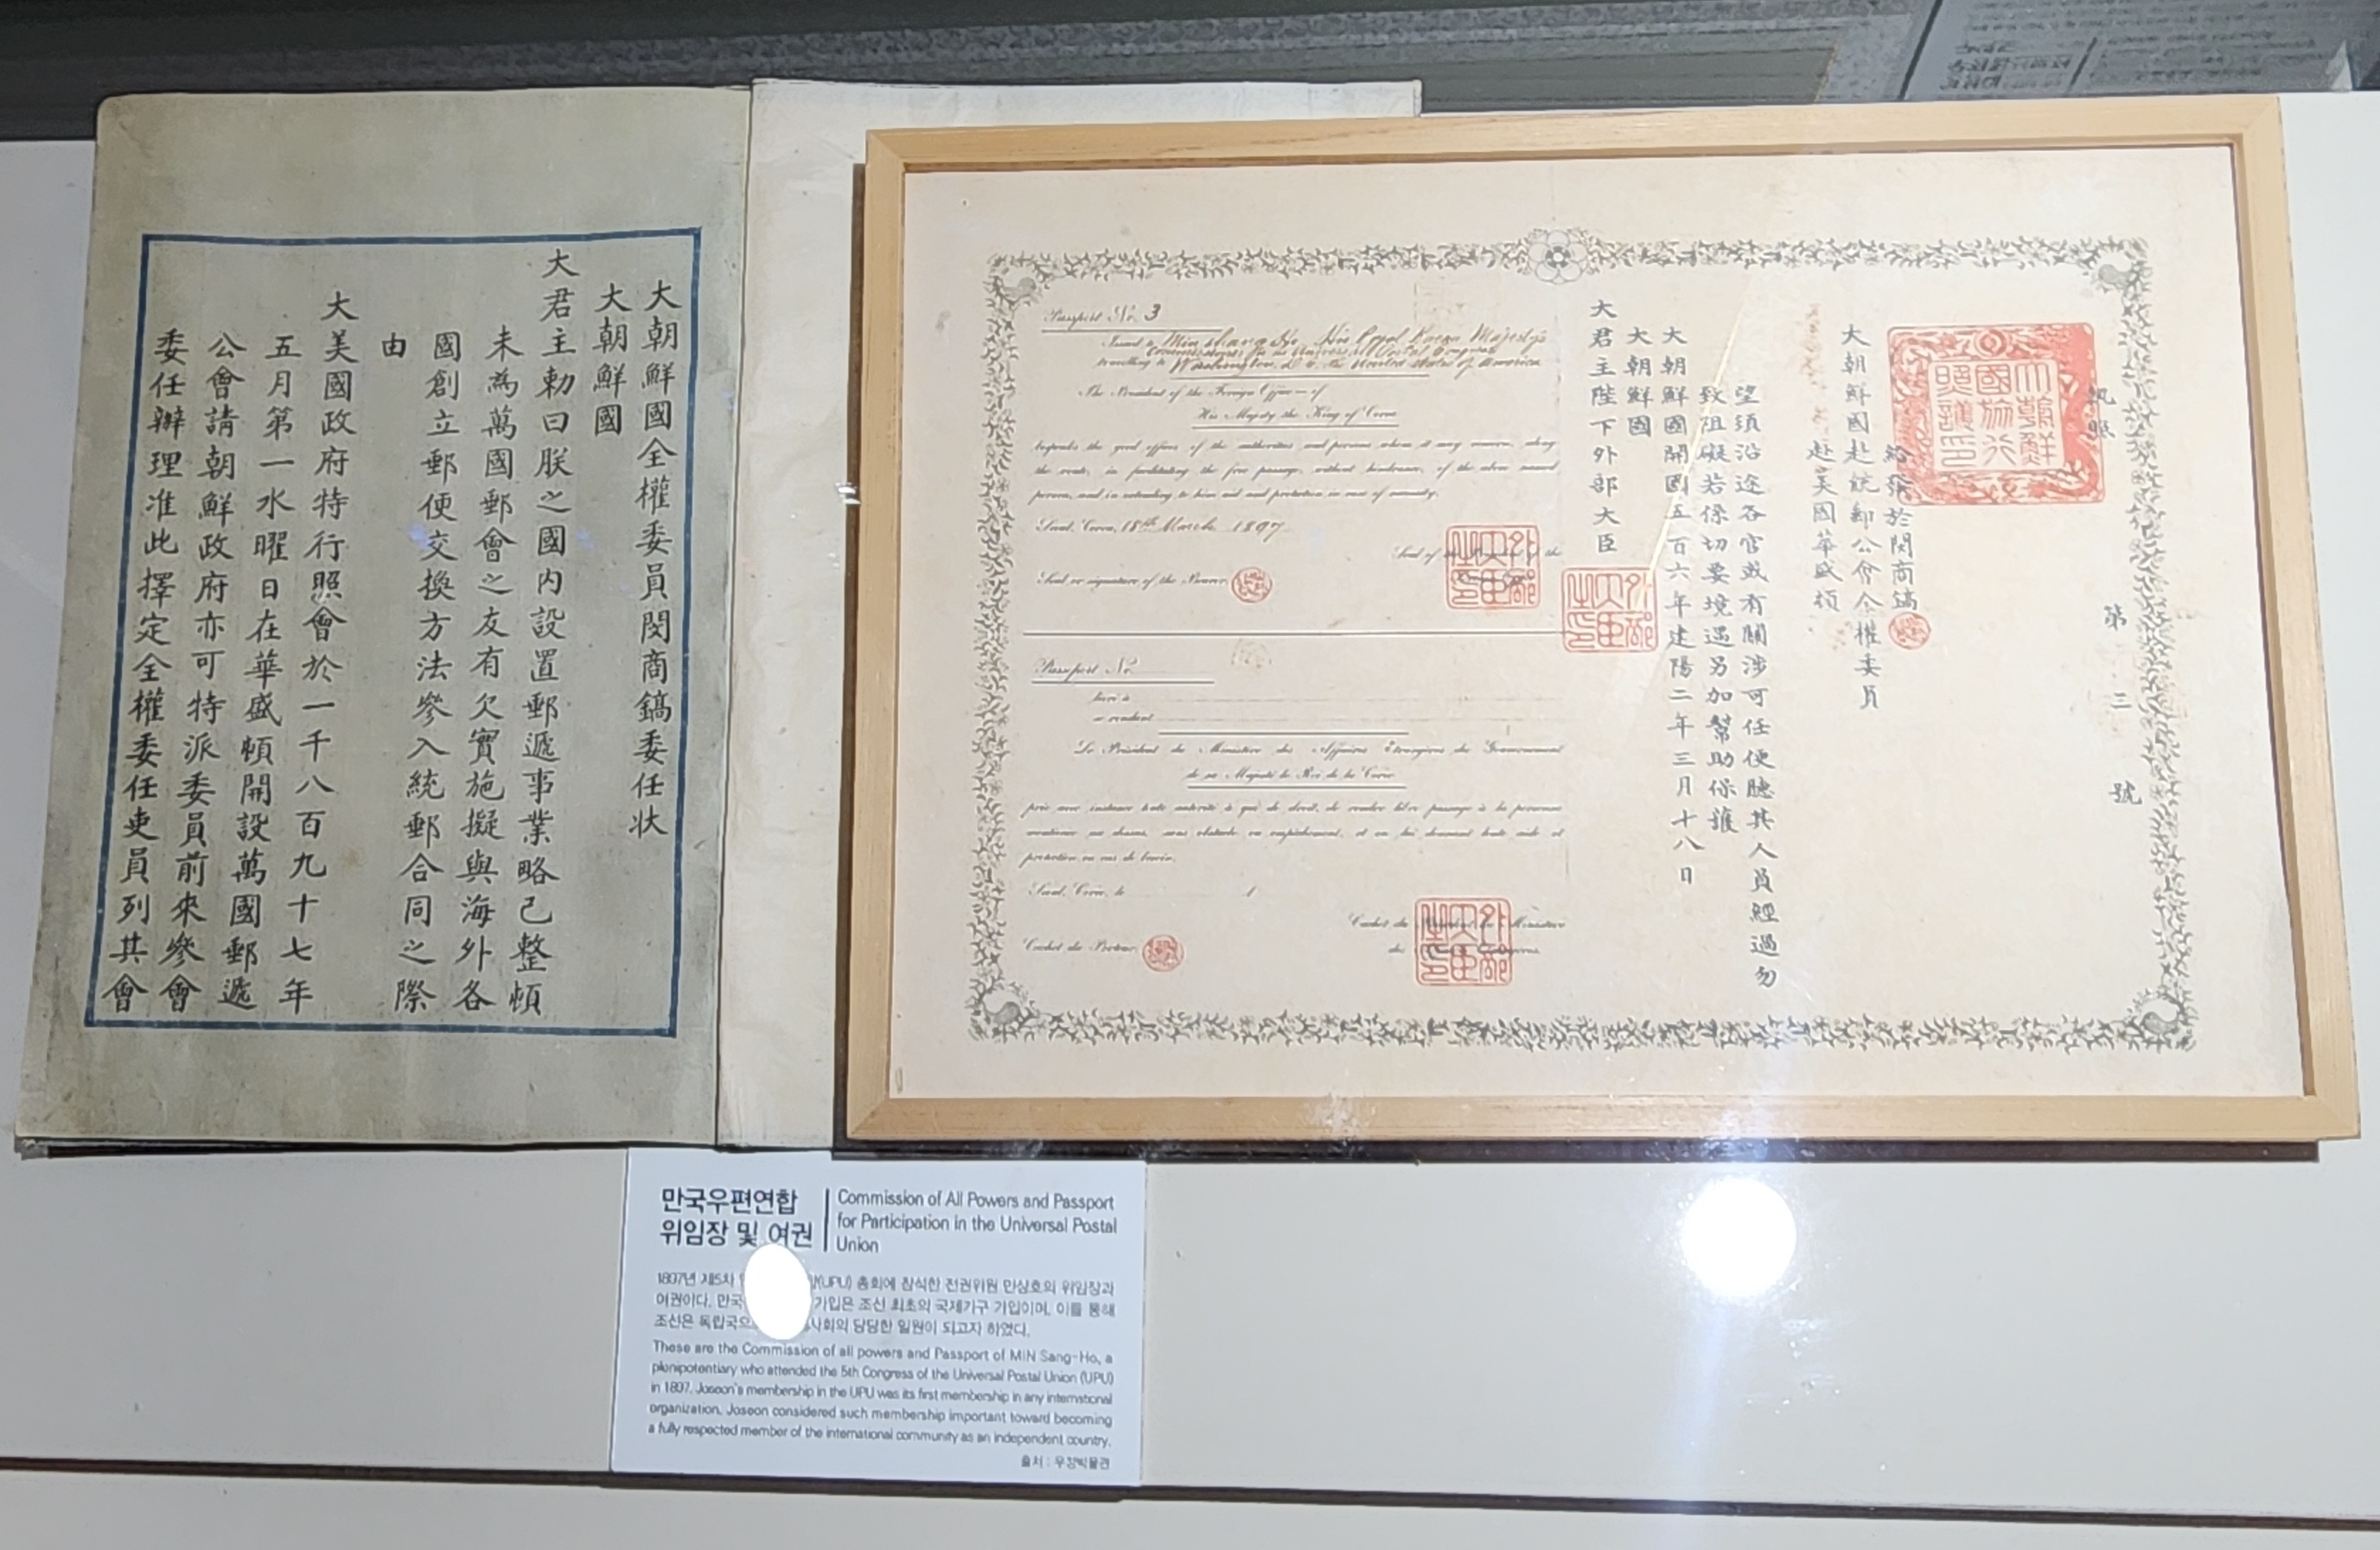 大朝鮮國全權委員閔商鎬委任状
大朝鮮國
大君主勅曰朕之國内設置郵遞事業略已整頓
未為萬國郵會之友有欠實施擬與海外各
國創立郵便交換方法參入統郵合同之際
由
大美國政府特行照會於一千八百九十七年
五月第一水曜日在華盛頓開設萬國郵遞
公會請朝鮮政府亦可特派委員前來參會
委任辦理准此擇定全權委任吏員列其會
執照
第三號
給發於閔商鎬
大朝鮮國赴統郵公會全權委員
赴美國華盛頓
望須沿途各官或有關涉可任便聽其人員經過勿
致阻礙若係切要境遇另加幫助保護
大朝鮮國開國五百六年建陽二年三月十八日
大朝鮮國
大君主陛下外部大臣
Passport No. 3
Issued to Min Sang Ho, His Majesty's
travelling to Washington D.C. the United States of America
The President of the Foreign Office of
His Majesty the King of Corea
requests the good offices of the authorities and persons whom it may concern, along
the route, in facilitating the free passage, without hindrance, of the above named
person, and in extending to him aid and protection in case of necessity.
Seoul, Corea, 18th March 1897
Seal of the President of the
Seal or signature of the Bearer
Passport No.
Le Président du Ministère des Affaires Étrangères du Gouvernement
de sa Majesté le Roi de la Corée
prie avec instance toute autorité à qui de droit, de rendre libre passage à la personne
protection en cas de besoin.
Seoul, Corée, le 1
Cachet du Ministère
Cachet du Porteur
만국우편연합
위임장 및 여권
Commission of All Powers and Passport
for Participation in the Universal Postal
Union
1897년 제5차 (UPU) 총회에 참석한 전권위원 민상호의 위임장과
여권이다. 만국 가입은 조선 최초의 국제기구 가입이며, 이를 통해
조선은 독립국으 사회의 당당한 일원이 되고자 하였다.
These are the Commission of all powers and Passport of MIN Sang-Ho, a
plenipotentiary who attended the 5th Congress of the Universal Postal Union (UPU)
in 1897. Joseon's membership in the UPU was its first membership in any international
organization. Joseon considered such membership important toward becoming
a fully respected member of the international community as an independent country.
출처 : 우정박물관